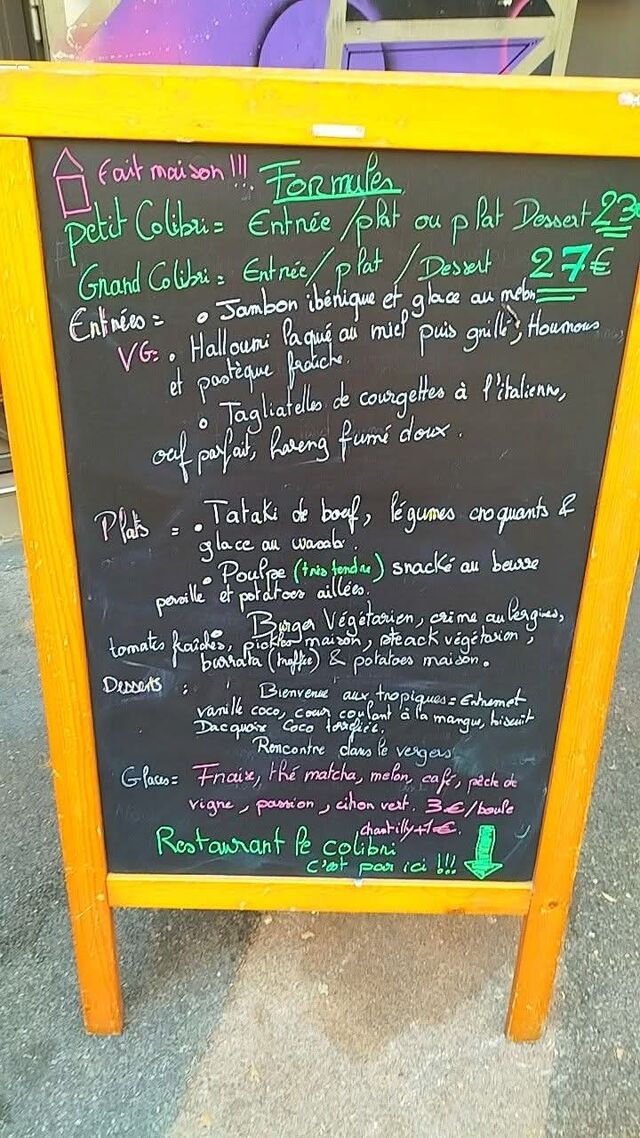 Fait maison !!! Formules
petit Colibri = Entrée / plat ou plat Dessert 23€
Grand Colibri = Entrée / plat / Dessert 27€
Entrées = • Jambon ibérique et glace au melon
VG: • Halloumi laqué au miel puis grillé, Houmous
et pastèque fraîche.
• Tagliatelles de courgettes à l'italienne,
oeuf parfait, hareng fumé doux.
Plats = • Tataki de boeuf, légumes croquants &
glace au wasabi
• Poulpe (très tendre) snacké au beurre
persillé et potatoes aillées.
Burger Végétarien, crème aubergines,
tomates fraîches, pickles maison, steack végétarien,
burrata (truffée) & potatoes maison.
Desserts : Bienvenue aux tropiques = Entremet
vanille coco, coeur coulant à la mangue, biscuit
Dacquoise Coco torréfiée.
Rencontre dans le vergers
Glaces = Fraise, thé matcha, melon, café, pêche de
vigne, passion, citron vert. 3€/boule
chantilly +1€.
Restaurant le colibri
c'est par ici !!!